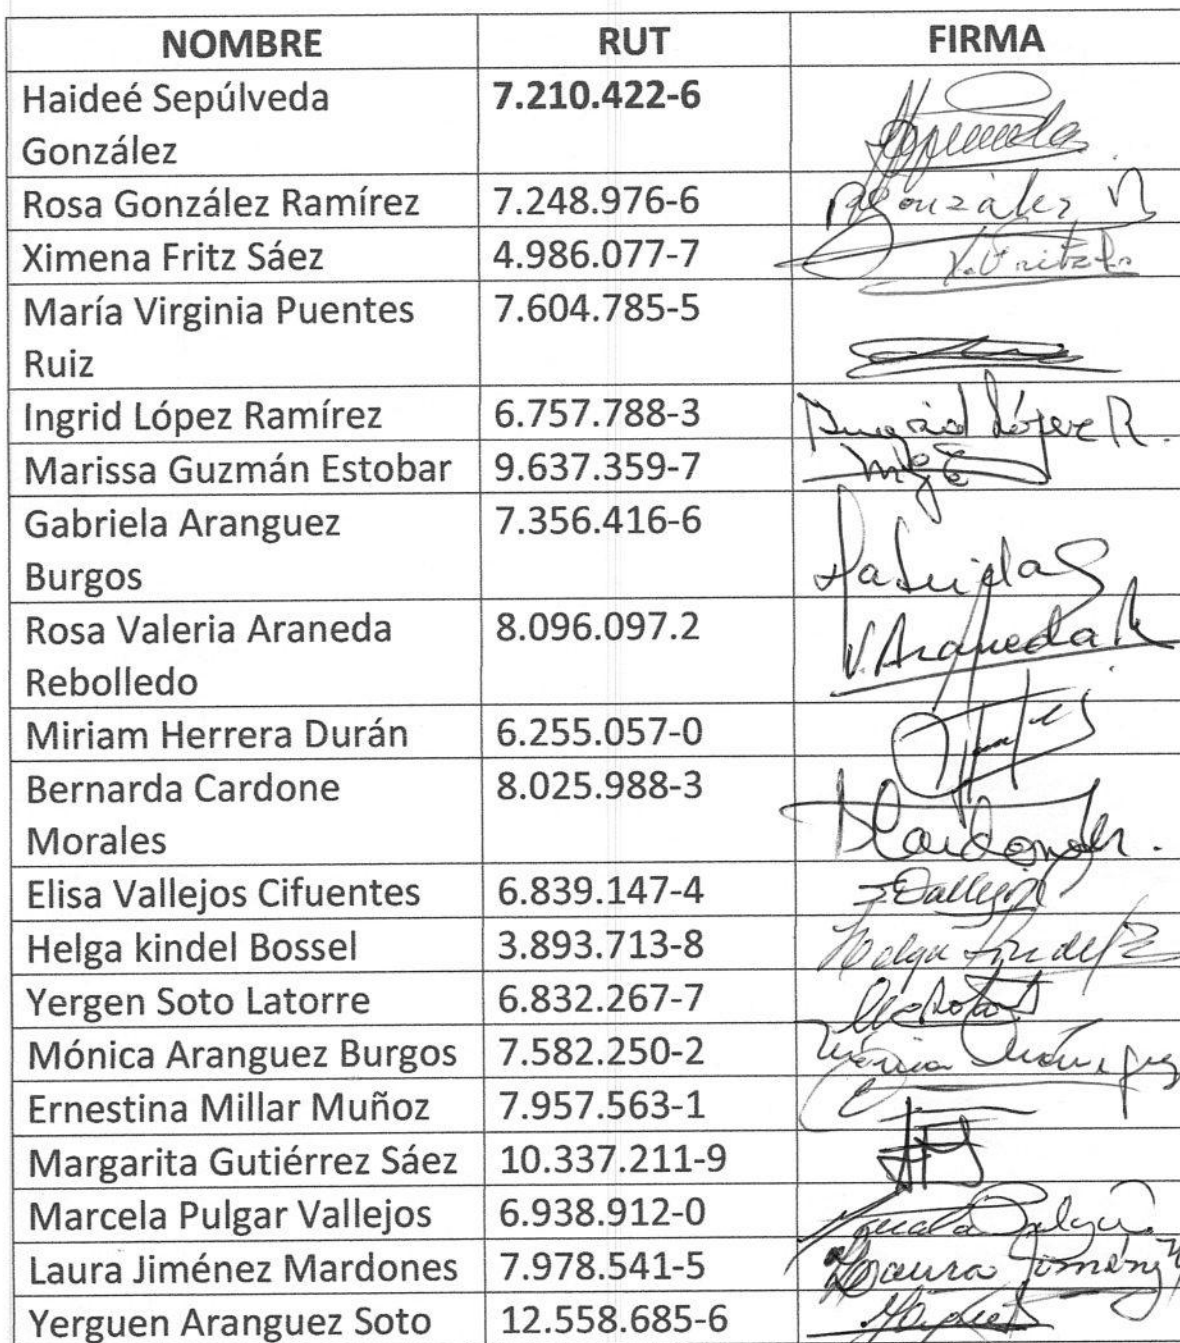 NOMBRE RUT FIRMA
Haideé Sepúlveda 7.210.422-6
González
Rosa González Ramírez 7.248.976-6 González
Ximena Fritz Sáez 4.986.077-7
María Virginia Puentes 7.604.785-5
Ruiz
Ingrid López Ramírez 6.757.788-3 Ingrid López R.
Marissa Guzmán Estobar 9.637.359-7
Gabriela Aranguez 7.356.416-6
Burgos
Rosa Valeria Araneda 8.096.097.2 V. Araneda R
Rebolledo
Miriam Herrera Durán 6.255.057-0
Bernarda Cardone 8.025.988-3
Morales
Elisa Vallejos Cifuentes 6.839.147-4
Helga kindel Bossel 3.893.713-8 Helga Kindel B
Yergen Soto Latorre 6.832.267-7
Mónica Aranguez Burgos 7.582.250-2 Mónica Aránguez
Ernestina Millar Muñoz 7.957.563-1
Margarita Gutiérrez Sáez 10.337.211-9
Marcela Pulgar Vallejos 6.938.912-0
Laura Jiménez Mardones 7.978.541-5 Laura Jiménez
Yerguen Aranguez Soto 12.558.685-6